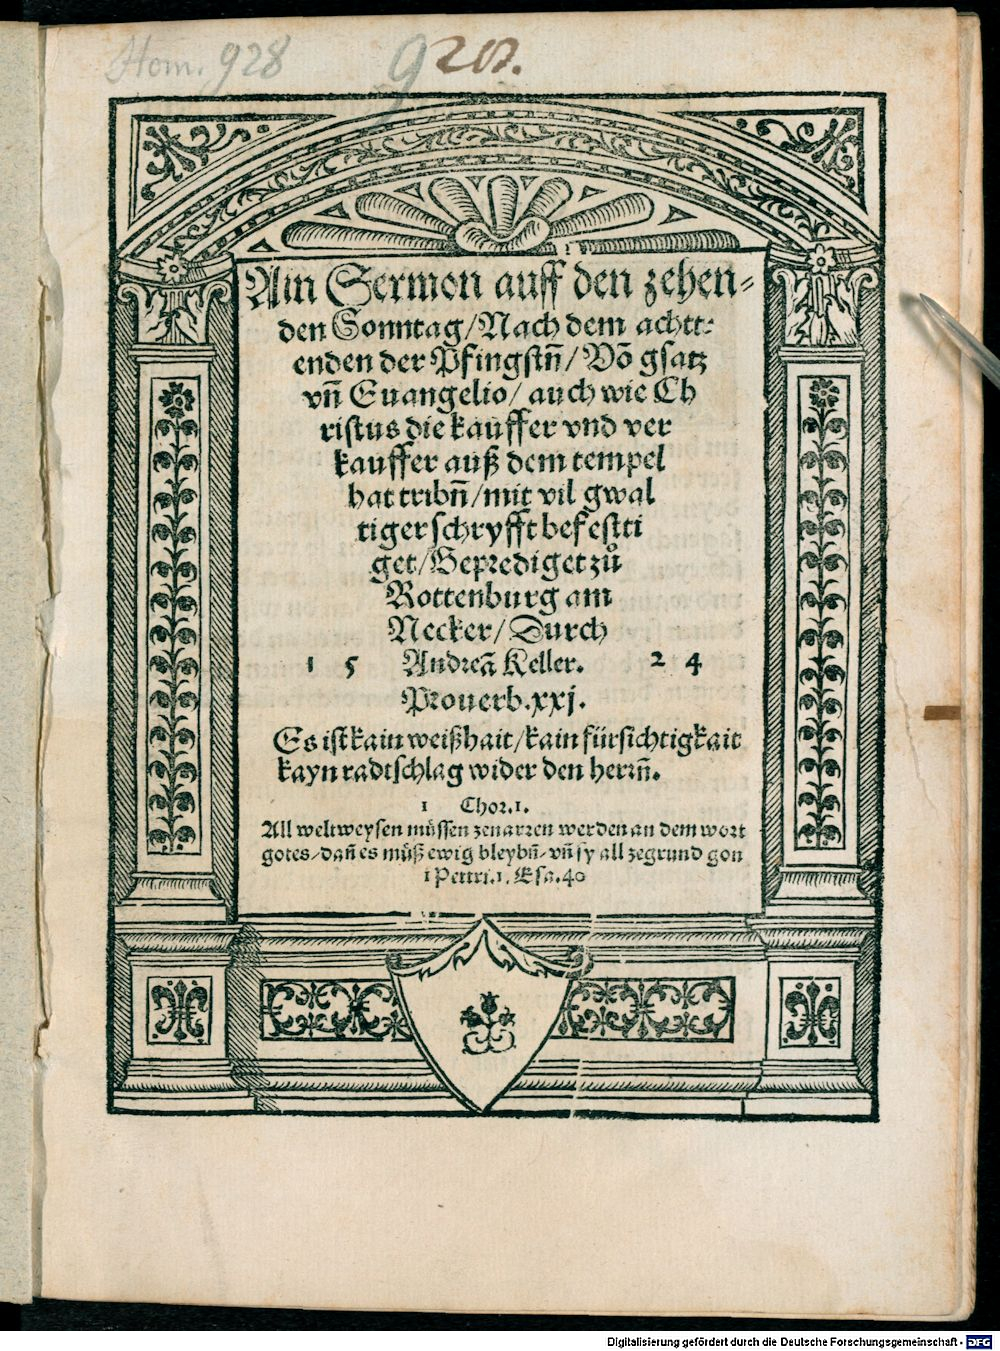 Hom. 928
920.
Ain Sermon auff den zehen-
den Sonntag/Nach dem achtt-
enden der Pfingstñ/Võ gsatz
vñ Euangelio/auch wie Ch
ristus die kauffer vnd ver
kauffer auß dem tempel
hat tribñ/mit vil gwal
tiger schryfft befestti
get/Geprediget zů
Rottenburg am
Necker/Durch
1 5 Andreã Keller. 2 4
Prouerb.xxj.
Es ist kain weißhait/kain fürsichtigkait
kayn radtschlag wider den herrñ.
1 Chor.1.
All weltweysen müssen zenarren werden an dem wort
gotes/dañ es můß ewig bleybñ/vñ sy all zegrund gon
1 Pettri.1. Esa.40
Digitalisierung gefördert durch die Deutsche Forschungsgemeinschaft - DFG